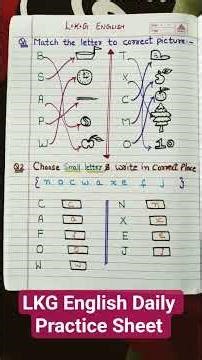 L.K.G ENGLISH
Q1 Match the letter to correct picture:-
B T
S X
A C
P M
W O
Q2 Choose Small letter & write in Correct Place
{ n o c w a x e f j }
C c N n
A a X x
F f E e
O o J j
W w
LKG English Daily
Practice Sheet